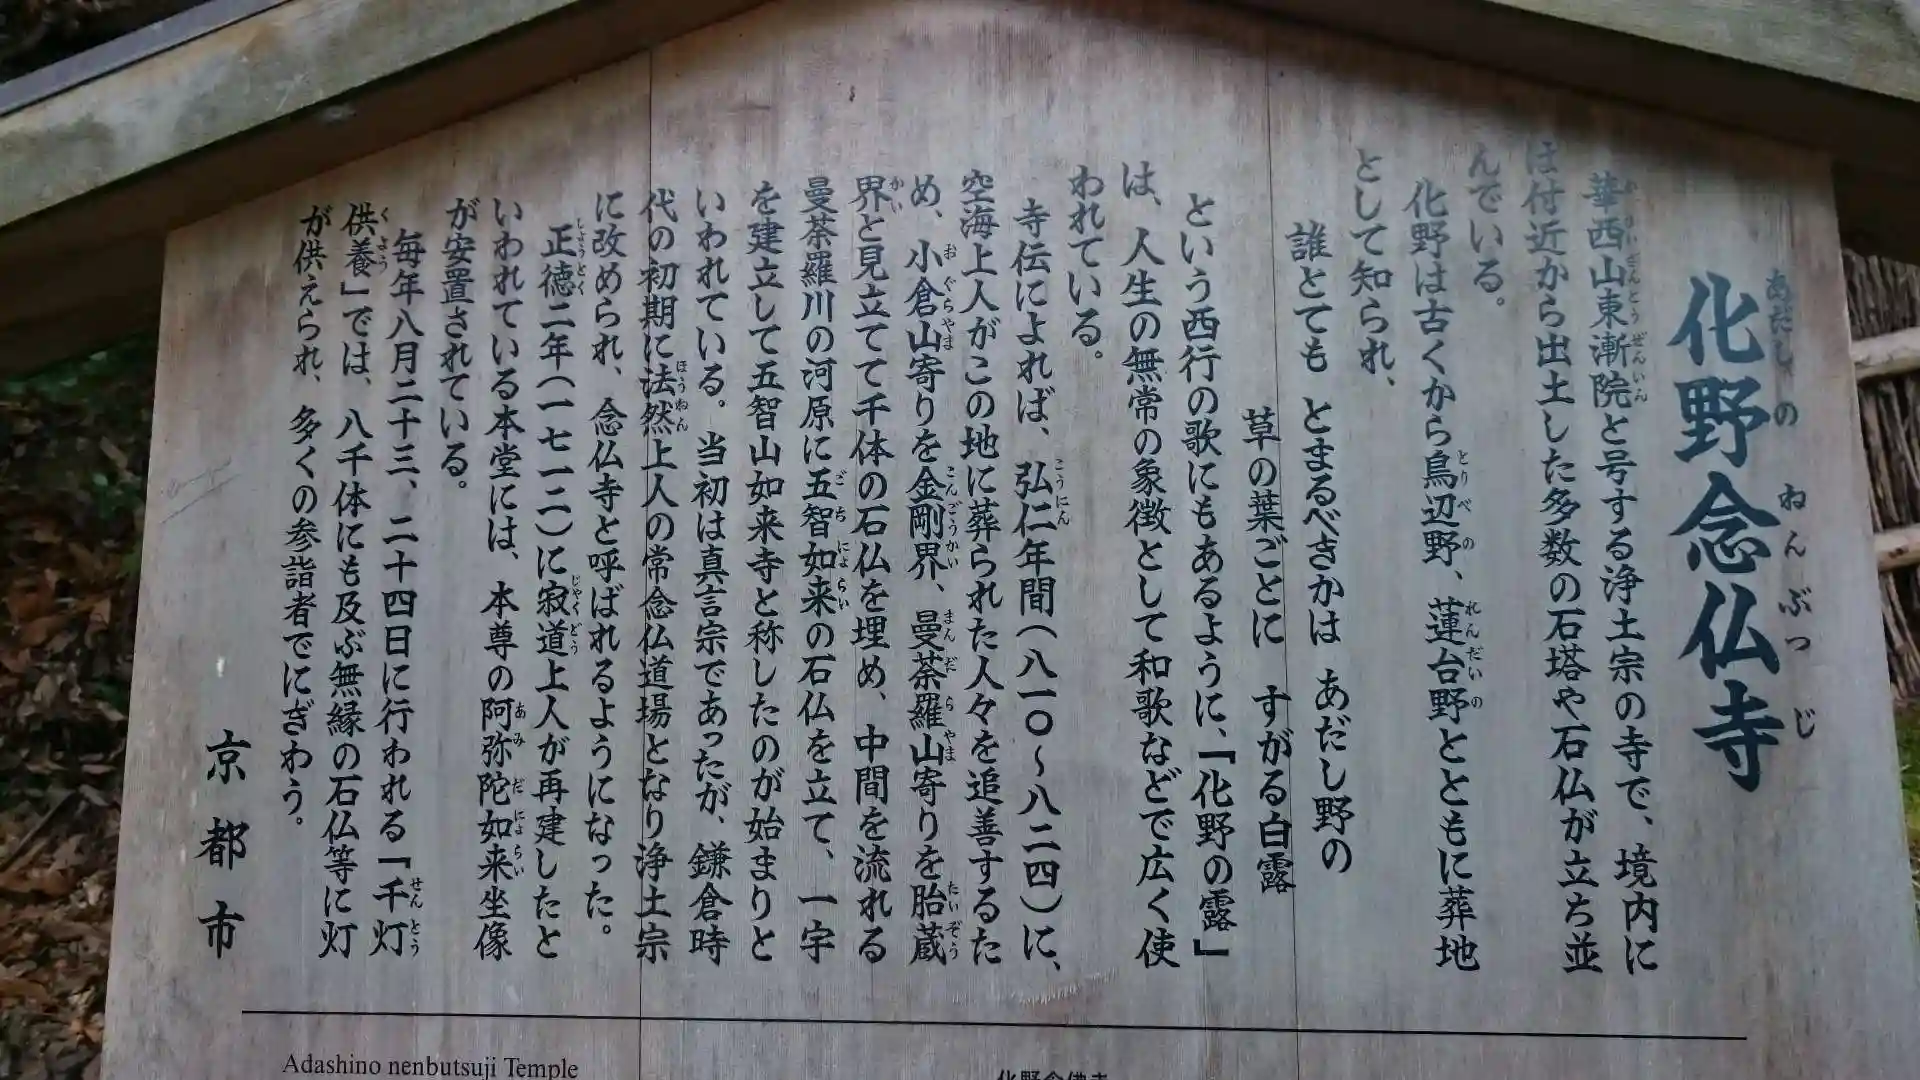 化野念仏寺
あだしの ねんぶつじ
華西山東漸院と号する浄土宗の寺で、境内に
は付近から出土した多数の石塔や石仏が立ち並
んでいる。
化野は古くから鳥辺野、蓮台野とともに葬地
として知られ、
誰とても とまるべきかは あだし野の
草の葉ごとに すがる白露
という西行の歌にもあるように、「化野の露」
は、人生の無常の象徴として和歌などで広く使
われている。
寺伝によれば、弘仁年間(八一〇~八二四)に、
空海上人がこの地に葬られた人々を追善するた
め、小倉山寄りを金剛界、曼荼羅山寄りを胎蔵
界と見立てて千体の石仏を埋め、中間を流れる
曼荼羅川の河原に五智如来の石仏を立て、一宇
を建立して五智山如来寺と称したのが始まりと
いわれている。当初は真言宗であったが、鎌倉時
代の初期に法然上人の常念仏道場となり浄土宗
に改められ、念仏寺と呼ばれるようになった。
正徳二年(一七一二)に寂道上人が再建したと
いわれている本堂には、本尊の阿弥陀如来坐像
が安置されている。
毎年八月二十三、二十四日に行われる「千灯
供養」では、八千体にも及ぶ無縁の石仏等に灯
が供えられ、多くの参詣者でにぎわう。
京都市
Adashino nenbutsuji Temple
化野念佛寺